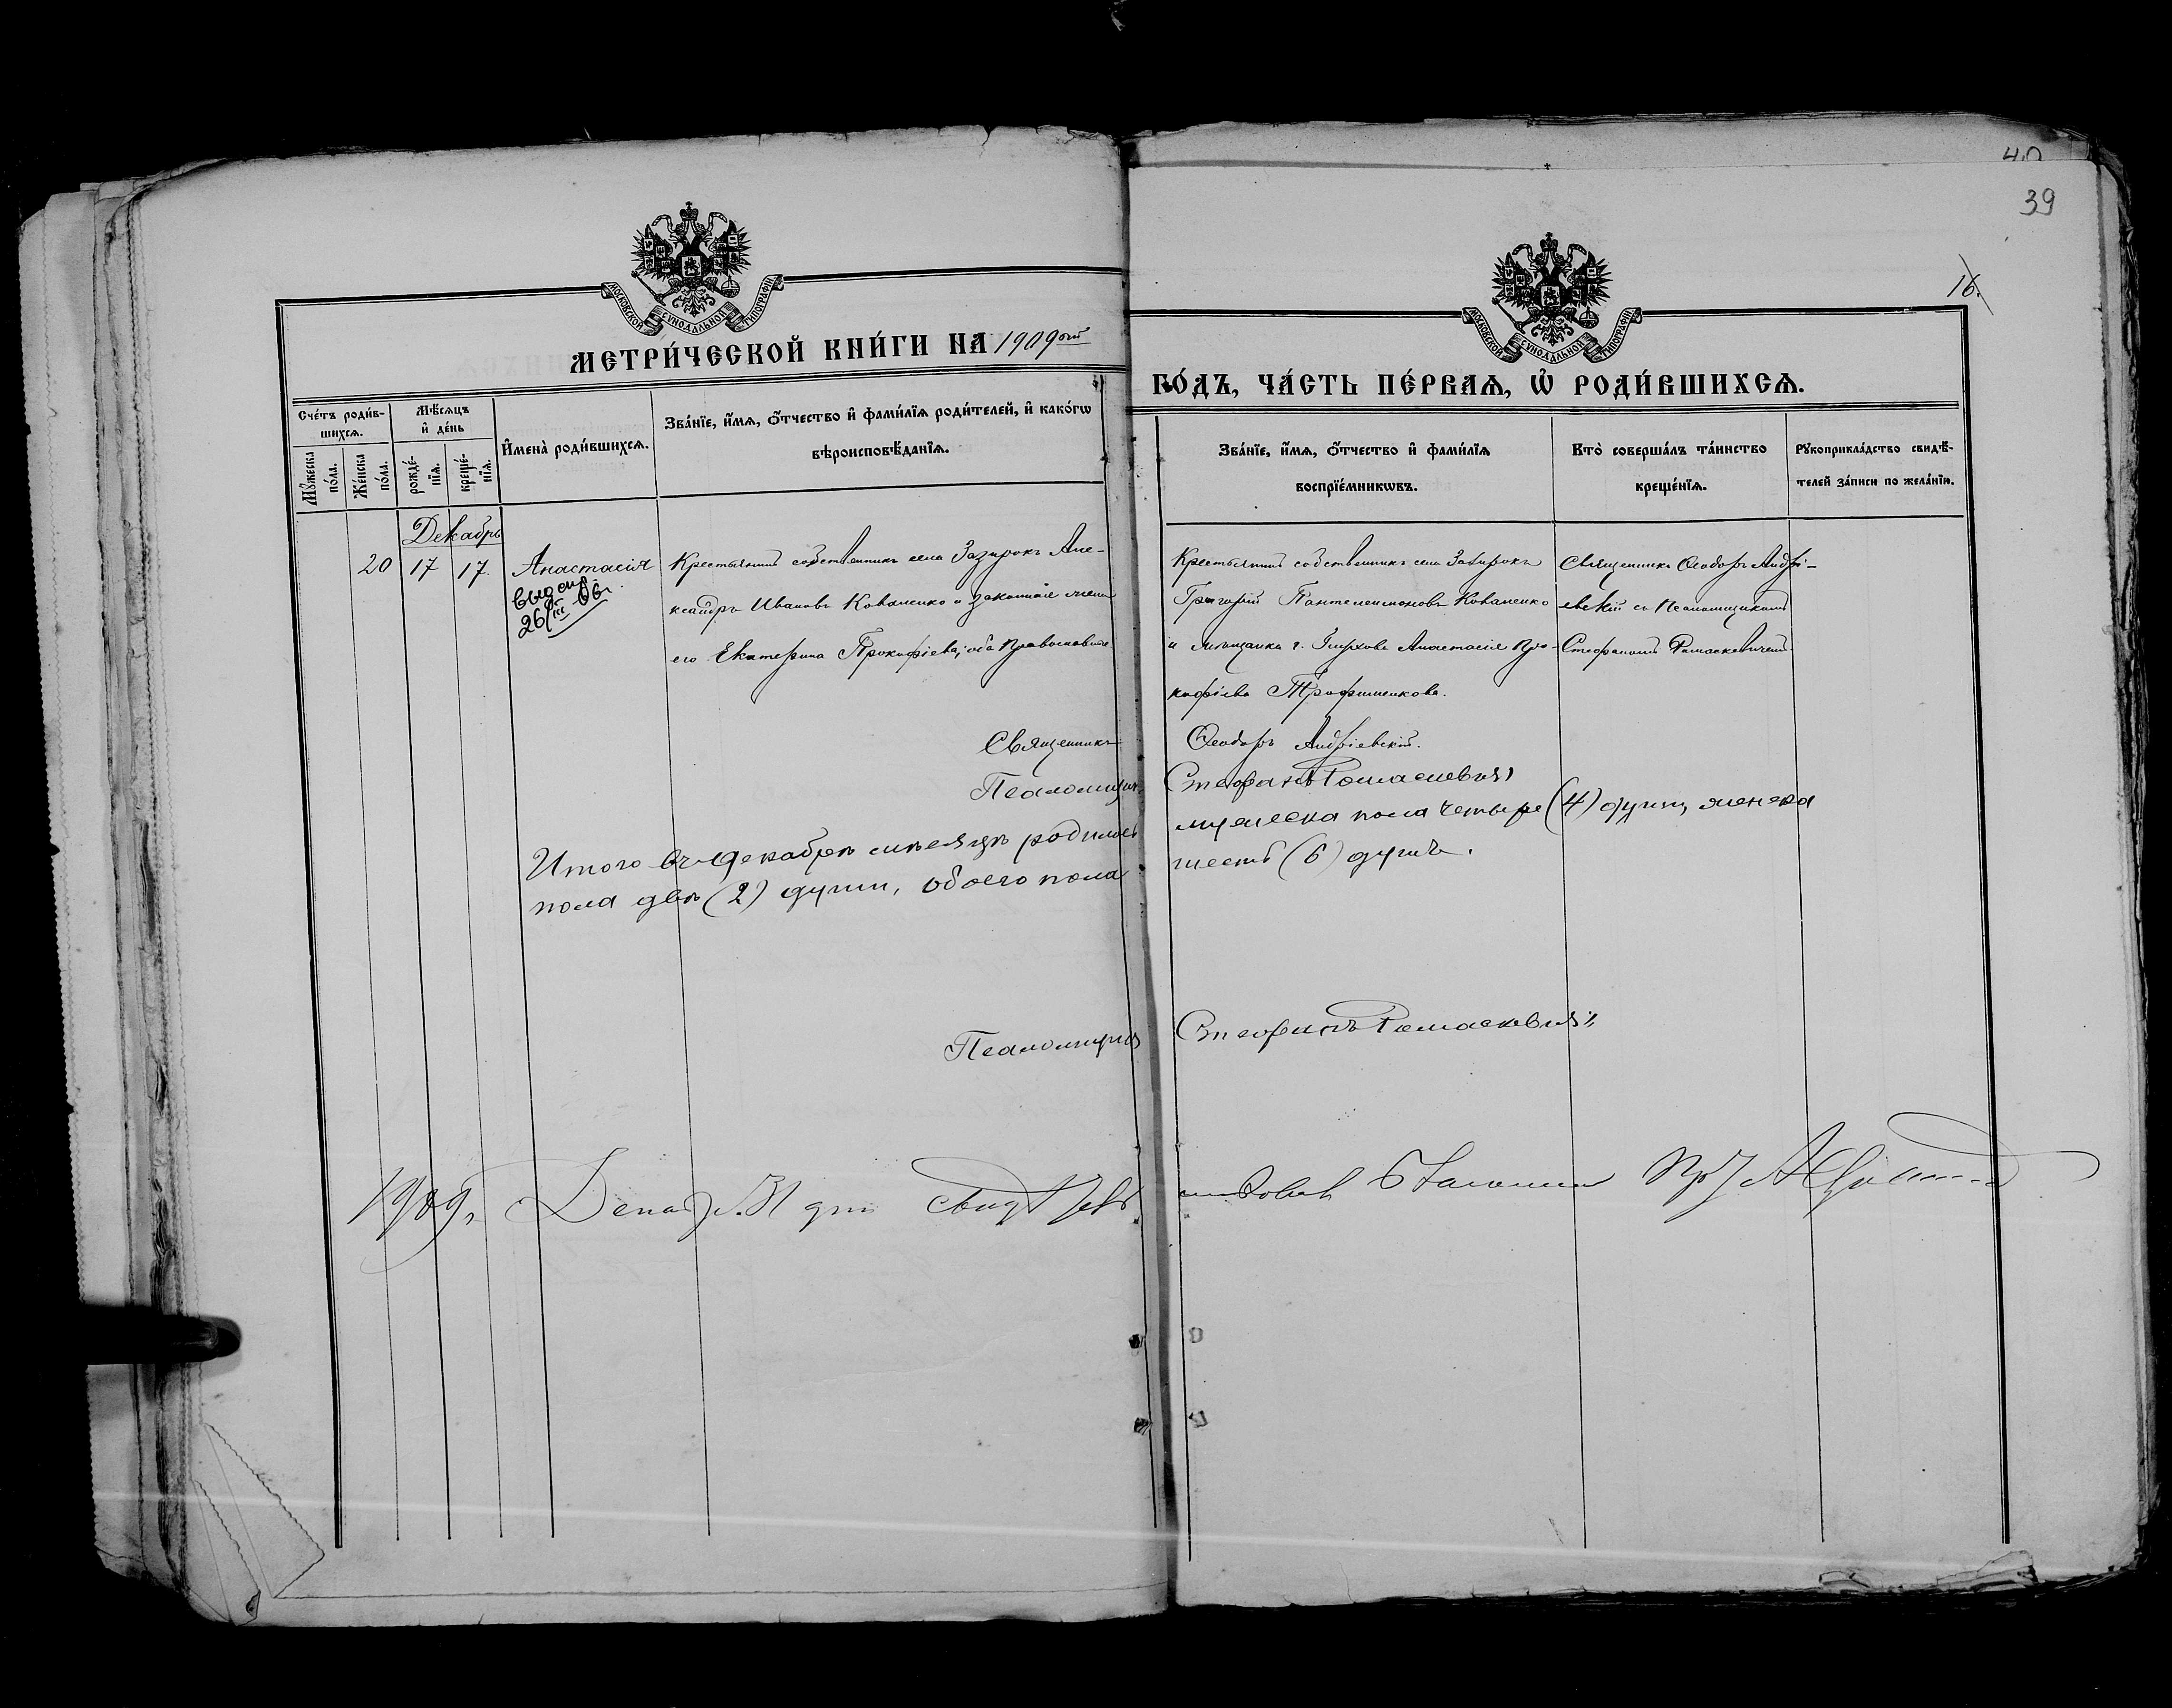 40
39
16.
МОСКОВСКОЙ СѴНОДАЛЬНОЙ ТИПОГРАФІИ
МОСКОВСКОЙ СѴНОДАЛЬНОЙ ТИПОГРАФІИ
МЕТРИ́ЧЕСКОЙ КНИ́ГИ НА 1909ый
ГО́ДЪ, ЧА́СТЬ ПЕ́РВАѦ, Ѡ҆ РОДИ́ВШИХСѦ.
Сче́тъ роди́в-
шихсѧ.
Мꙋ́жеска по́ла.
Же́нска по́ла.
Мѣ́сѧцъ
и҆ де́нь
рожде́-
нїѧ.
креще́-
нїѧ.
И҆мена̀ роди́вшихсѧ.
Зва́нїе, и҆́мѧ, ѻ҆́тчество и҆ фами́лїѧ роди́телей, и҆ како́гѡ
вѣроисповѣ́данїѧ.
Зва́нїе, и҆́мѧ, ѻ҆́тчество и҆ фами́лїѧ
воспрїе́мникѡвъ.
Кто̀ соверша́лъ та́инство
креще́нїѧ.
Рꙋкоприкла́дство свидѣ́-
телей за́писи по жела́нїю.
Декабрь
20 17 17. Анастасія
выд спр.
26/III 66г.
Крестьянинъ собственникъ села Зазирокъ Але-
ксандръ Ивановъ Коваленко и законная жена
его Екатерина Прокофіева, оба православные
Крестьянинъ собственникъ села Зазирокъ
Григорій Пантелеимоновъ Коваленко
и мѣщанка г. Глухова Анастасія Про-
кофіева Трофименкова.
Священникъ Ѳеодоръ Андрі-
евскій съ Псаломщикомъ
Стефаномъ Ромаскевичемъ.
Священникъ Ѳеодоръ Андріевскій.
Псаломщикъ Стефанъ Ромаскевичъ
Итого въ декабрѣ мѣсяцѣ родилось мужеска пола четыре (4) душъ, женска
пола двѣ (2) души, обоего пола шесть (6) душъ.
Псаломщикъ Стефанъ Ромаскевичъ
1909г. Декаб. 31 дня свидѣтел